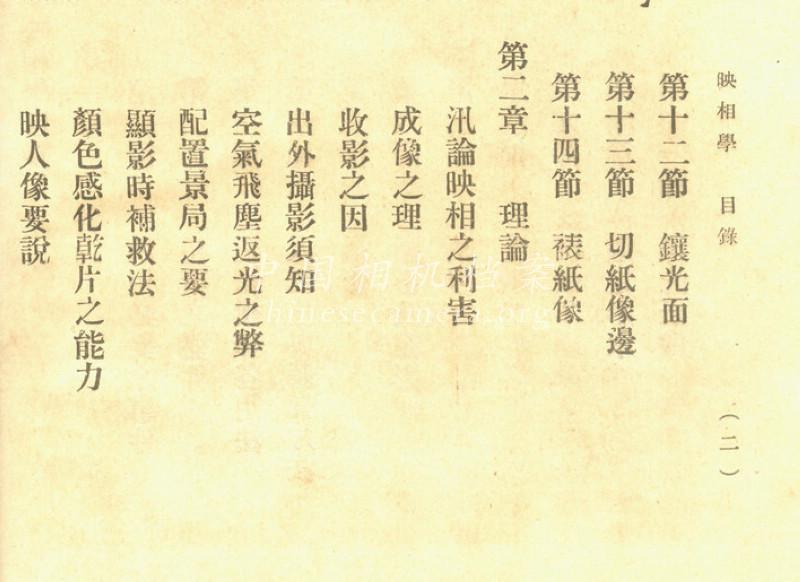 映相學 目錄 (二)
第十二節 鑲光面
第十三節 切紙像邊
第十四節 裱紙像
第二章 理論
汛論映相之利害
成像之理
收影之因
出外攝影須知
空氣飛塵返光之弊
配置景局之要
顯影時補救法
顏色感化乾片之能力
映人像要說
中国相机档案
Chinesecamera.org